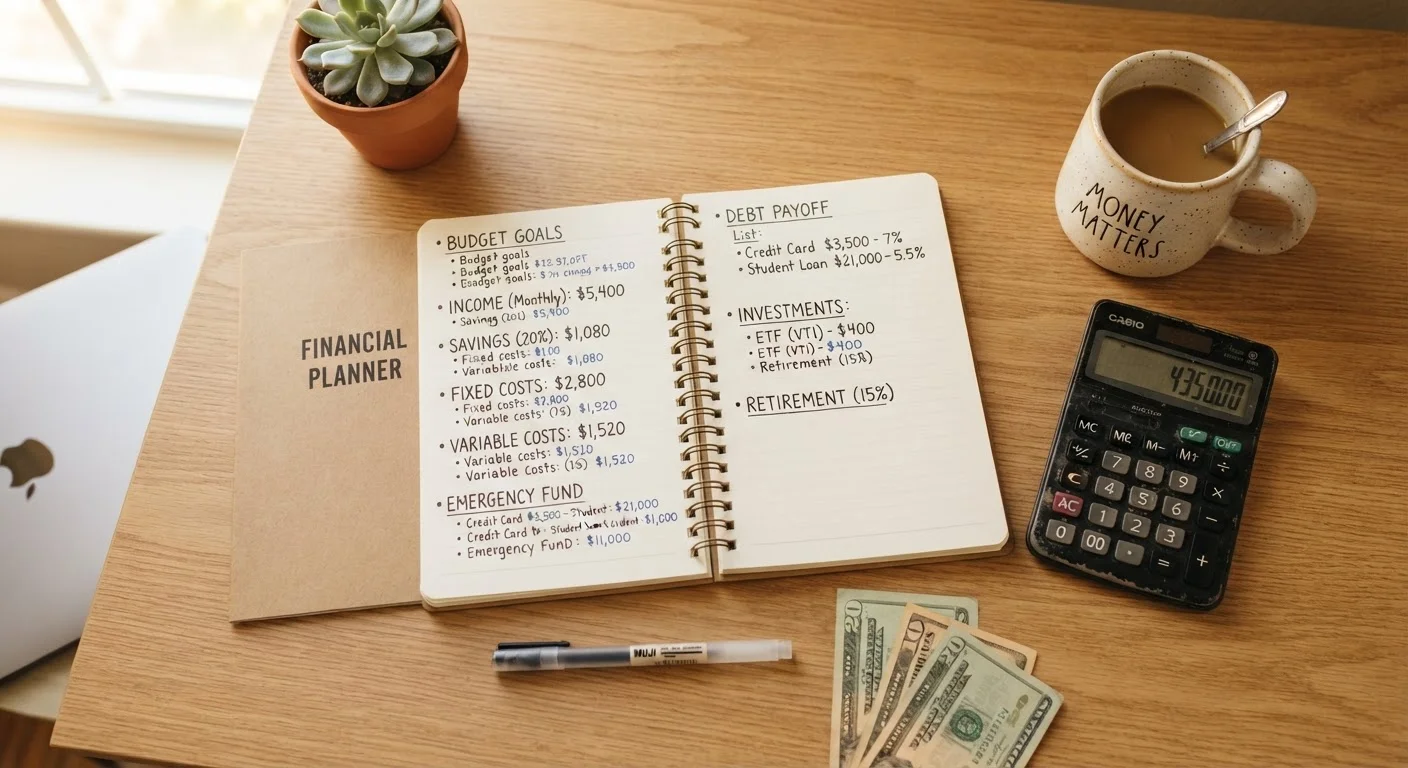 FINANCIAL
PLANNER
• BUDGET GOALS
• Budget goals
• Budget goals
goals:
• INCOME (Monthly): $5,400
• Savings (20%) $5,400
• SAVINGS (20%): $1,080
• Fixed costs: $100
costs: $1,080
• FIXED COSTS: $2,800
• Fixed costs:
Variable costs: $1,920
• VARIABLE COSTS: $1,520
• Variable costs: $1,510
• Variable Costs: $1,520
• EMERGENCY FUND
• Credit Card $3,500 - Student: $21,000
• Credit Card Student $1,000
• Emergency FunD: $11,000
• DEBT PAYOFF
List:
• Credit Card $3,500 - 7%
• Student Loan $21,000 - 5.5%
• INVESTMENTS:
• ETF (VTI) - $400
• ETF (VTI) - $400
• Retirement (15%)
• RETIREMENT (15%)
MONEY
MATTERS
CASIO
435000
MC MR M- M+
7 8 9 ÷
4 5 6 ×
AC 1 2 3 −
0 00 · = +
MUJI
20
10
20